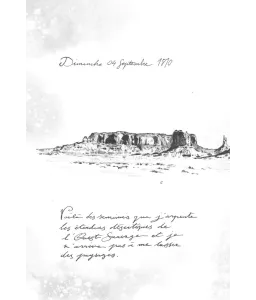 Dimanche 04 Septembre 1870
Voilà des semaines que j'arpente
les étendues désertiques de
l'Ouest Sauvage et je
n'arrive pas à me lasser
des paysages.